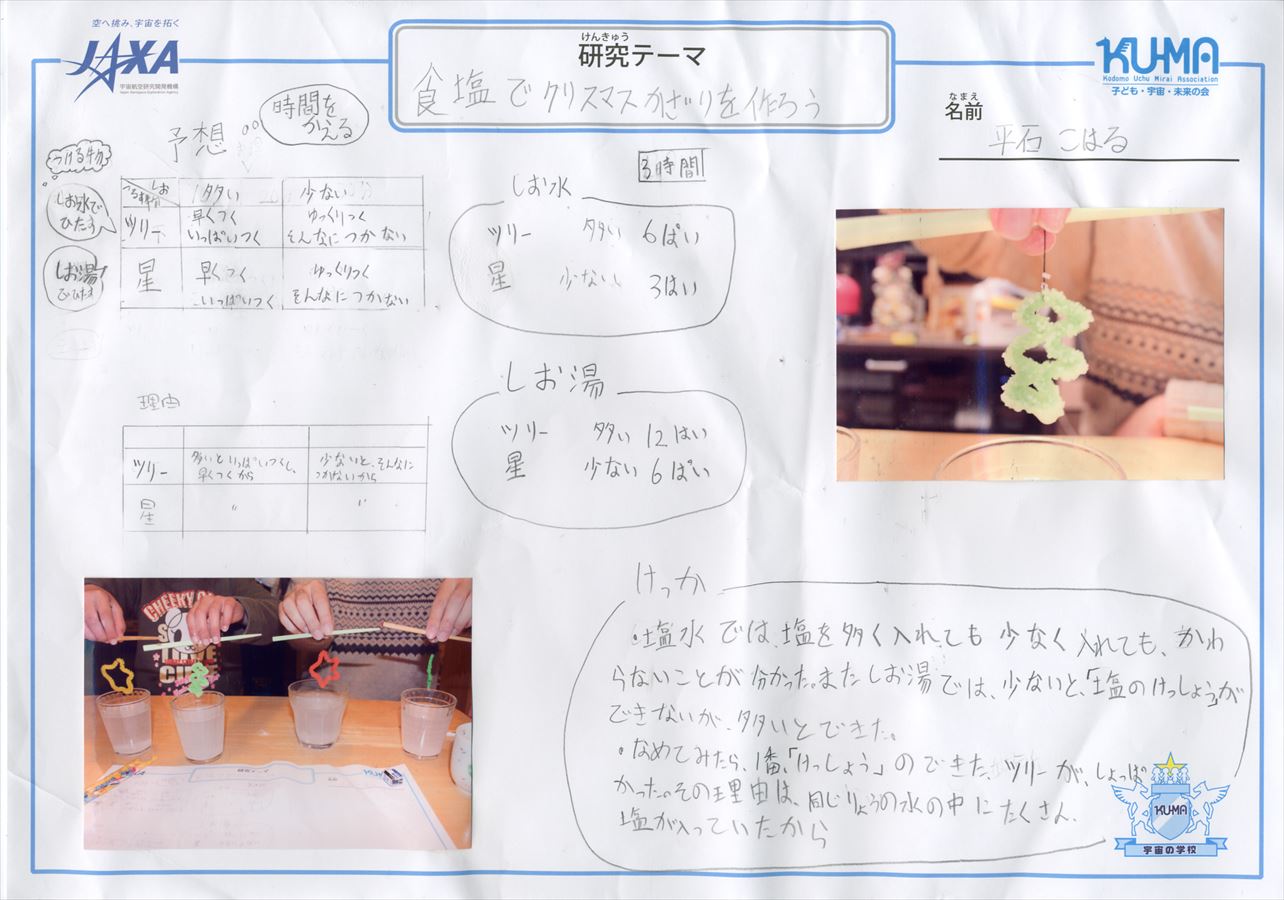 空へ挑み、宇宙を拓く
JAXA
宇宙航空研究開発機構
Japan Aerospace Exploration Agency
けんきゅう
研究テーマ
食塩でクリスマスかざりを作ろう
KU-MA
Kodomo Uchu Mirai Association
子ども・宇宙・未来の会
なまえ
名前
平石 こはる
予想
時間を
かえる
つける物
しお水で
ひたす
しお湯
でひたす
しお
多い 少ない
ツリー 早くつく ゆっくりつく
いっぱいつく そんなにつかない
星 早くつく ゆっくりつく
いっぱいつく そんなにつかない
3時間
しお水
ツリー 多い 6ぱい
星 少ない 3ばい
しお湯
ツリー 多い 12はい
星 少ない 6ぱい
理由
ツリー 多いといっぱいつくし、 少ないと、そんなに
早くつくから つかないから
星 〃 〃
CHEEKY
けっか
・塩水では、塩を多く入れても少なく入れても、かわ
らないことが分かった。またしお湯では、少ないと、「塩のけっしょう」が
できないが、多いとできた。
・なめてみたら、1番、「けっしょう」のできた、ツリーが、しょっぱ
かった。その理由は、同じりょうの水の中にたくさん、
塩が入っていたから
KU-MA
宇宙の学校